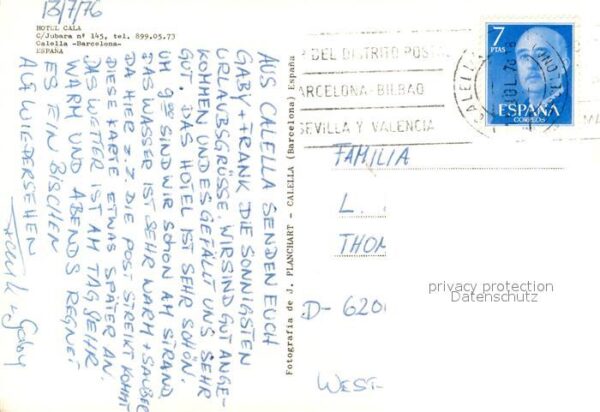 13/7/76
HOTEL CALA
C/Jubara nº 145, tel. 899.05.73
Calella -Barcelona-
ESPAÑA
AUS CALELLA SENDEN EUCH
GABY + FRANK DIE SONNIGSTEN
URLAUBSGRÜSSE. WIR SIND GUT ANGE-
KOMMEN UND ES GEFÄLLT UNS SEHR
GUT. DAS HOTEL IST SEHR SCHÖN.
UM 9 SIND WIR SCHON AM STRAND
DAS WASSER IST SEHR WARM + SAUBER
DA HIER Z.Z DIE POST STREIKT KOMMT
DIESE KARTE ETWAS SPÄTER AN.
DAS WETTER IST AM TAG SEHR
WARM UND ABENDS REGNET
ES EIN BISCHEN
AUF WIEDERSEHEN
Frank + Gaby
Fotografía de J. PLANCHART - CALELLA (Barcelona) España
DEL DISTRITO POSTAL
BARCELONA-BILBAO
SEVILLA Y VALENCIA
CALELLA
7
PTAS
ESPAÑA
CORREOS
FAMILIA
L.
THO
D-620
WEST
privacy protection
Datenschutz